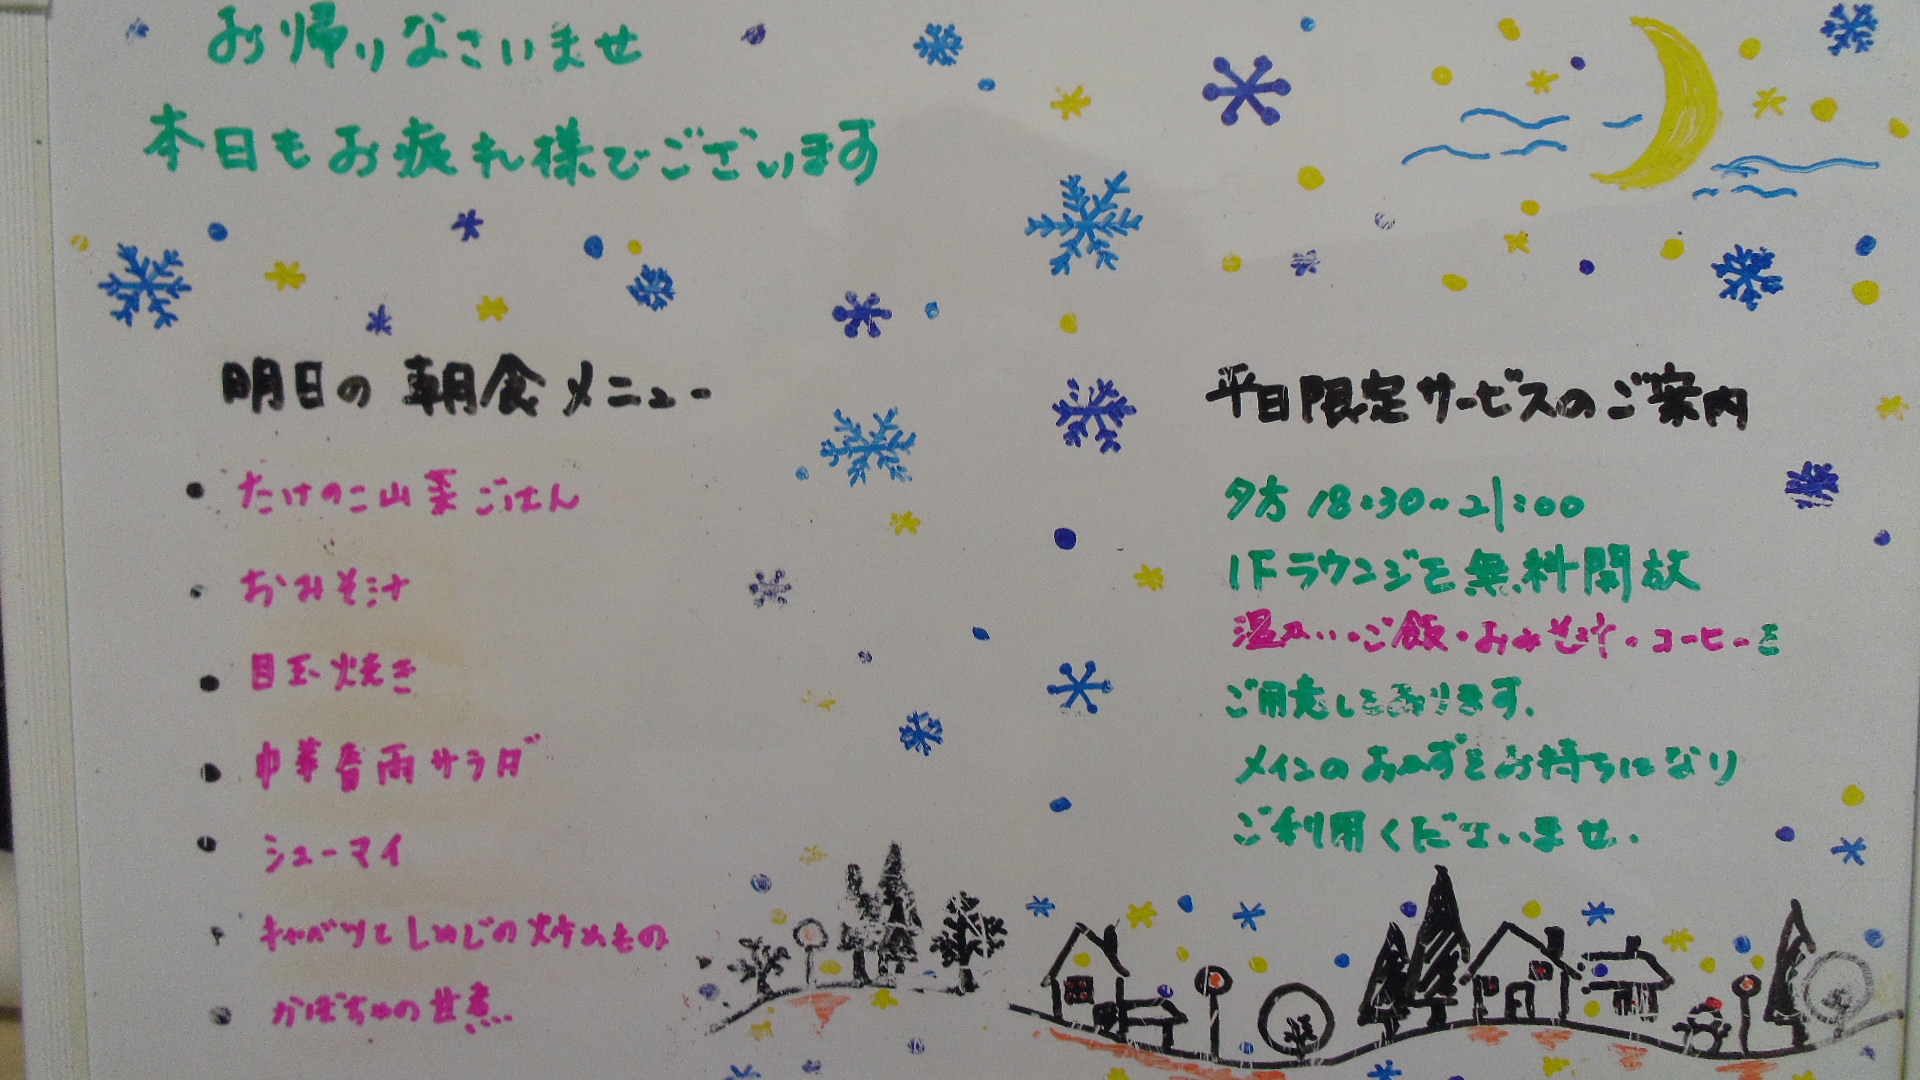 お帰りなさいませ
本日もお疲れ様でございます
明日の朝食メニュー
・たけのこ山菜ごはん
・おみそ汁
・目玉焼き
・中華春雨サラダ
・シューマイ
・キャベツとしめじの炒めもの
・かぼちゃの甘煮
平日限定サービスのご案内
夕方 18:30~21:00
1Fラウンジを無料開放
温かい・ご飯・おみそ汁・コーヒーを
ご用意しております。
メインのおかずをお持ちになり
ご利用くださいませ。